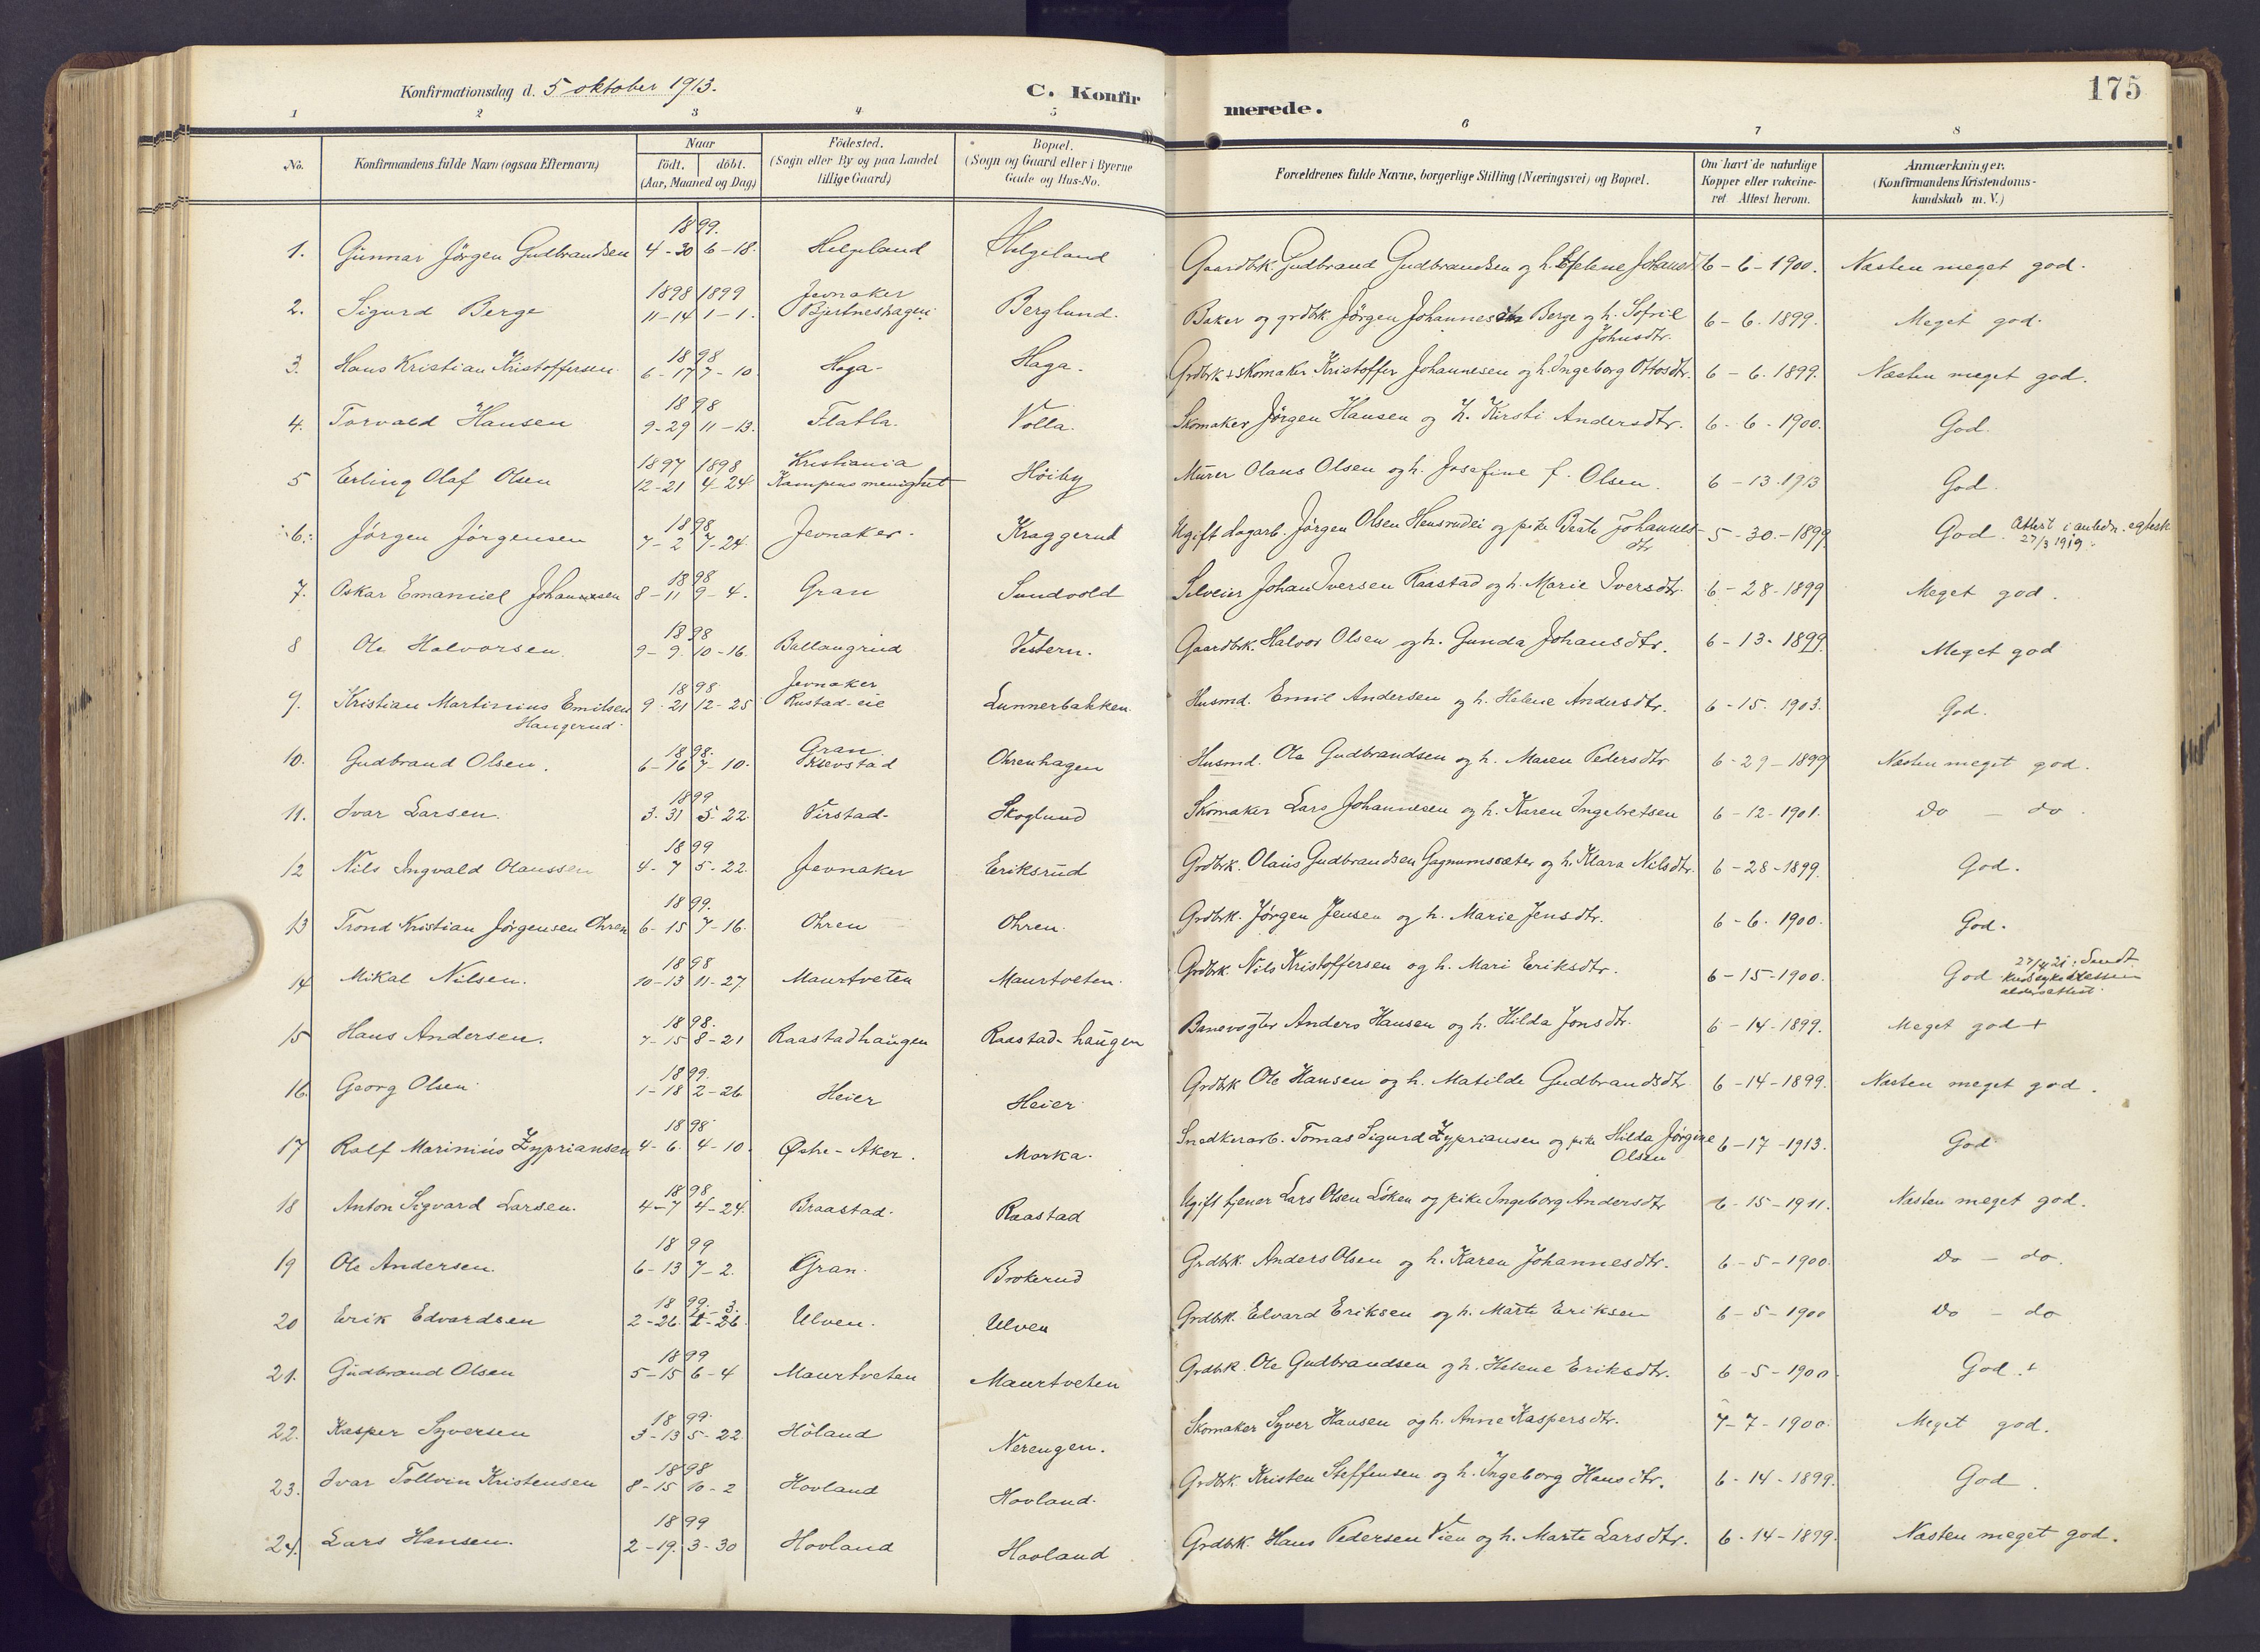 Konfirmationsdag d. 5 oktober 1913.
C. Konfirmerede.
175
1 2 3 4 5 6 7 8
No. | Konfirmandens fulde Navn (ogsaa Efternavn) | Naar födt. döbt. (Aar, Maaned og Dag) | Födested. (Sogn eller By og paa Landet tillige Gaard) | Bopæl. (Sogn og Gaard eller i Byerne Gade og Hus-No. | Forældrenes fulde Navne, borgerlige Stilling (Næringsvei) og Bopæl. | Om havt de naturlige Kopper eller vakcineret. Attest herom. | Anmærkninger. (Konfirmandens Kristendomskundskab m. V.)
1. Gunnar Jörgen Gudbrandsen | 1899. 4-30 | 6-18. | Helgeland | Helgeland | Gaardbrk. Gudbrand Gudbrandsen og h. Helene | 6-6-1900. | Næsten meget god.
2. Sigurd Berge | 1898 11-14 | 1899 1-1. | Jevnaker Bjertneshagen | Berglund. | Baker og grdbk Jörgen Berge og h. Sofie Johnsdtr. | 6-6. 1899. | Meget god.
3. Hans Kristian Kristoffersen | 1898 6-17 | 7-10 | Haga- | Haga. | Grdbrk + skomaker Kristoffer Johannesen og h. Ingeborg Ottosdtr. | 6-6. 1899. | Næsten meget god.
4. Torvald Hansen | 1898 9-29 | 11-13. | Flatla. | Volla. | Skomaker Jörgen Hansen og h. Kirsti Andersdtr. | 6-6-1900. | God.
5 Erling Olaf Olsen | 1897 12-21 | 1898 4-24 | Kristiania Kampens menighet | Höiby | Murer Olaus Olsen og h. Josefine f. Olsen. | 6-13-1913 | God.
6. Jörgen Jörgensen | 1898 7-2 | 7-24. | Jevnaker. | Kraggerud | Ugift dagarb. Jörgen Olsen Hensrudei og pike Beate Johannesdtr | 5-30.-1899. | God. Attest i anledn. egtesk 27/3 1919.
7. Oskar Emanuel Johansen | 1898 8-11 | 9-4. | Gran | Sundvold | Selveier Johan Iversen Raastad og h. Marie Iversdtr. | 6-28-1899 | Meget god.
8 Ole Halvorsen | 1898 9-9. | 10-16. | Ballangrud | Vestern. | Gaardbrk. Halvor Olsen og h. Gunda Johansdtr. | 6-13-1899. | Meget god
9. Kristian Martinius Emilsen Haugerud. | 1898 9-21 | 12-25 | Jevnaker Rustad-eie | Lunnerbakken | Husmd. Emil Andersen og h. Helene Andersdtr. | 6-15. 1903. | God.
10. Gudbrand Olsen. | 1898. 6-16 | 7-10. | Gran | Ohrenhagen | Husmd. Ole Gudbrandsen og h. Maren Pedersdtr | 6-29-1899 | Næsten meget god.
11. Ivar Larsen. | 1899 3-31 | 5-22. | Virstad- | Skoglund | Skomaker Lars Johannesen og h. Karen Ingebretsen | 6-12-1901. | Do — do
12 Nils Ingvald Olaussen | 1899 4-7 | 5-22. | Jevnaker | Eriksrud | Grdbrk. Olaus Gudbrandsen Gagnumsæter og h. Klara Nilsdtr. | 6-28-1899. | God.
13 Trond Kristian Jörgensen Ohren | 1899. 6-15 | 7-16. | Ohren | Ohren. | Grdbrk. Jörgen Jensen og h. Marie Jensdtr. | 6-6. 1900. | God.
14 Mikal Nilsen. | 1898 10-13 | 11-27 | Maurtveten | Maurtveten. | Grdbrk. Nils Kristoffersen og h. Mari Eriksdtr. | 6-15-1900. | God. Sendt aldersattest.
15 Hans Andersen. | 1898. 7-15 | 8-21 | Raastadhaugen | Raastad-haugen | Banevogter Anders Hansen og h. Hilda Jonsdtr. | 6-14-1899. | Meget god +
16. Georg Olsen | 1899. 1-18 | 2-26. | Heier | Heier | Grdbrk Ole Hansen og h. Matilde Gudbrandsdtr | 6-14-1899. | Næsten meget god.
17 Rolf Marinius Zypriansen | 1898 4-6. | 4-10. | Østre-Aker. | Morka. | Snedkerarb. Tomas Sigurd Zypriansen og pike Hilda Jörgine Olsen | 6-17-1913. | God
18 Anton Sigvard Larsen. | 1898 4-7 | 4-24. | Braastad. | Raastad | Ugift tjener Lars Olsen Löken og pike Ingeborg Andersdtr | 6-15-1911. | Næsten meget god.
19 Ole Andersen. | 1899 6-13 | 7-2. | Gran. | Brokerud | Grdbrk. Anders Olsen og h. Karen Johannesdtr. | 6-5-1900. | Do — do.
20 Erik Edvardsen | 1899. 2-26. | 3-26. | Ulven. | Ulven | Grdbrk. Edvard Eriksen og h. Marte Eriksen | 6-5-1900 | Do — do
21. Gudbrand Olsen | 1899 5-15 | 6-4 | Maurtveten | Maurtveten | Grdbrk. Ole Gudbrandsen og h. Helene Eriksdtr. | 6-5-1900. | God +
22. Kasper Syversen | 1899. 3-13 | 5-22. | Höland | Nerengen. | Skomaker Syver Hansen og h. Anne Kaspersdtr. | 7-7-1900. | Meget god.
23. Ivar Tollvin Kristensen | 1898 8-15 | 10-2 | Hovland | Hovland. | Grdbrk. Kristen Steffensen og h. Ingeborg Hansdtr. | 6-14-1899. | God.
24. Lars Hansen. | 1899 2-19. | 3-30 | Hovland | Hovland | Grdbrk. Hans Pedersen Vien og h. Marte Larsdtr. | 6-14-1899. | Næsten meget god.